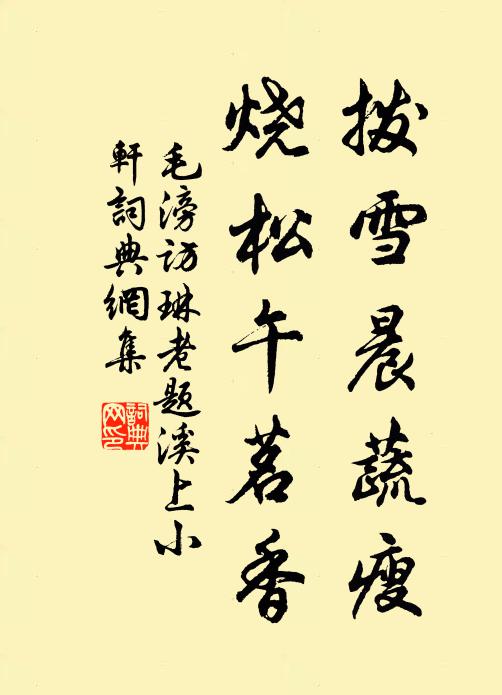 拨雪晨蔬瘦
烧松午茗香
毛滂访琳老题溪上小
軒詞典網集
詞典
网印